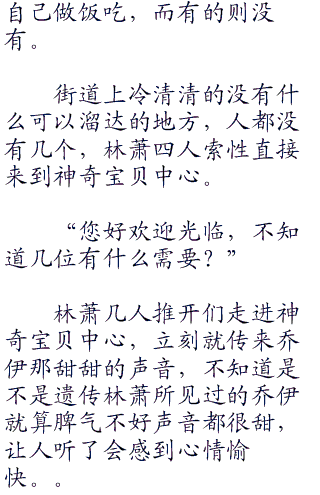 自己做饭吃，而有的则没
有。
街道上冷清清的没有什
么可以溜达的地方，人都没
有几个，林萧四人索性直接
来到神奇宝贝中心。
“您好欢迎光临，不知
道几位有什么需要？”
林萧几人推开们走进神
奇宝贝中心，立刻就传来乔
伊那甜甜的声音，不知道是
不是遗传林萧所见过的乔伊
就算脾气不好声音都很甜，
让人听了会感到心情愉
快。。